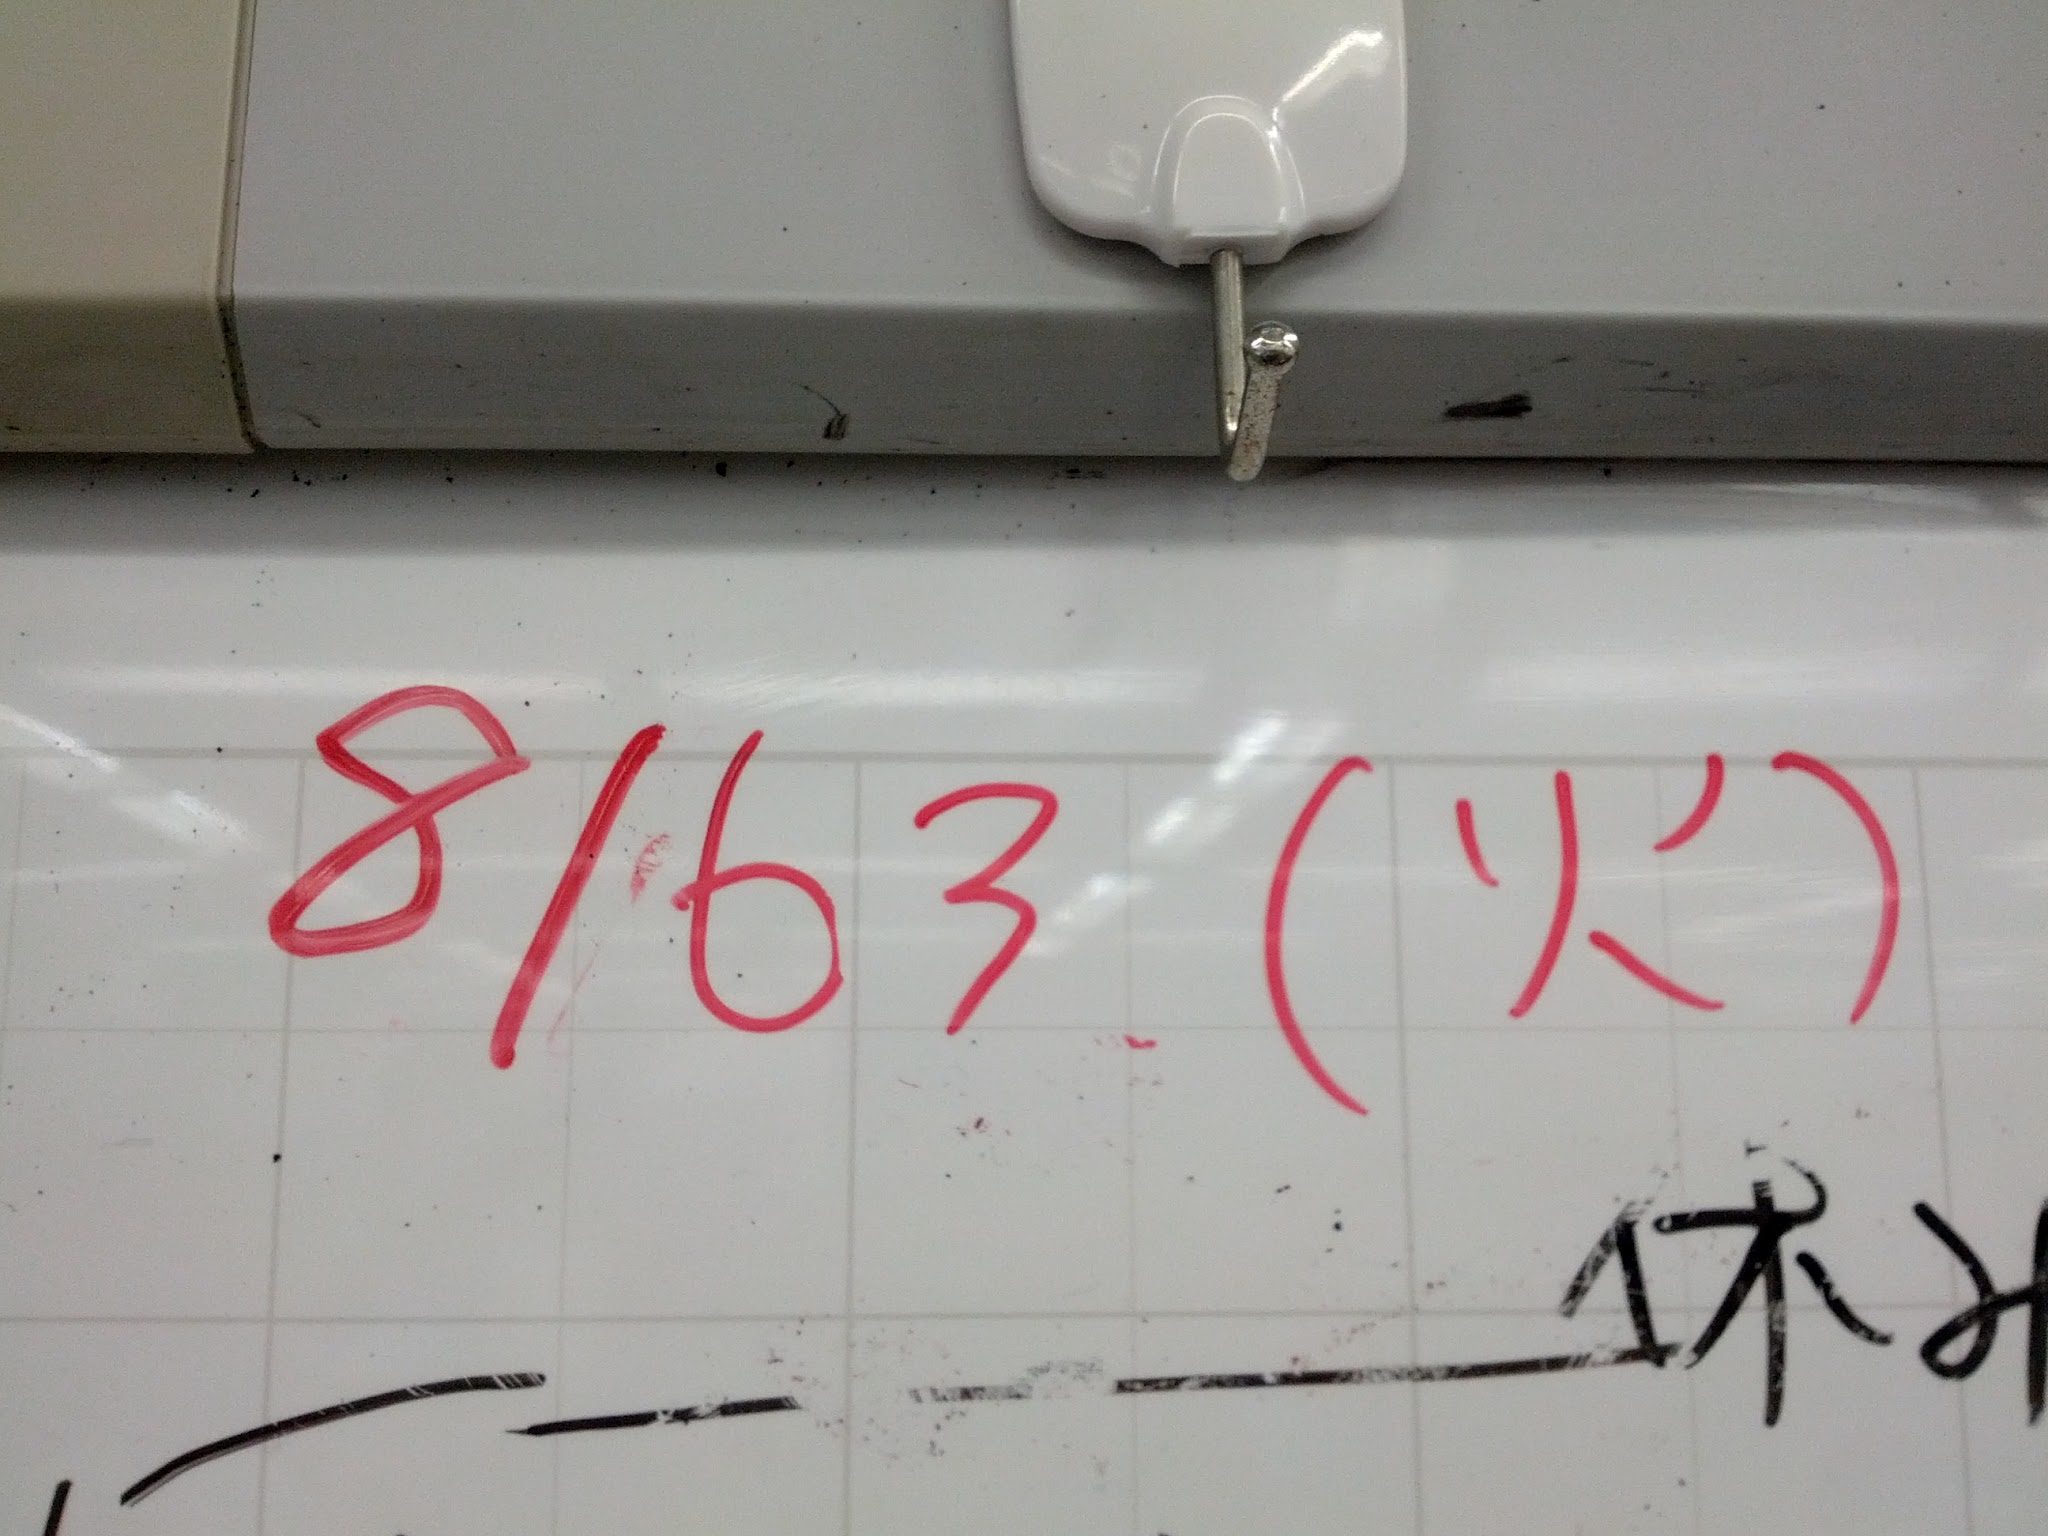 8/63 (火)
休み